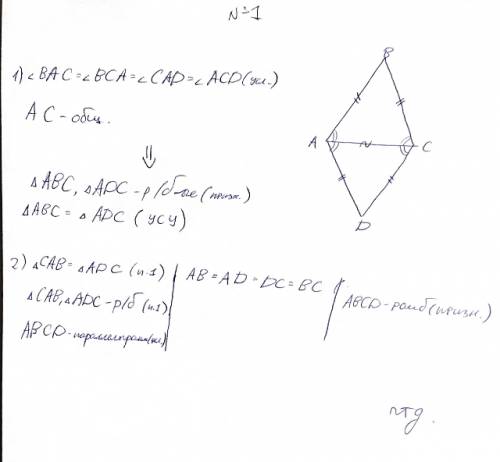 №1
1) ∠BAC=∠BCA=∠CAD=∠ACD(усл.)
AC-общ.
⇓
△ABC, △ADC-р/б-ые(призн.)
△ABC=△ADC (УСУ)
2) △CAB=△ADC (п.1)
△CAB,△ADC-р/б (п.1)
ABCD-параллелграмм
AB=AD=DC=BC
ABCD-ромб(призн.)
чтд.
B
A
C
D